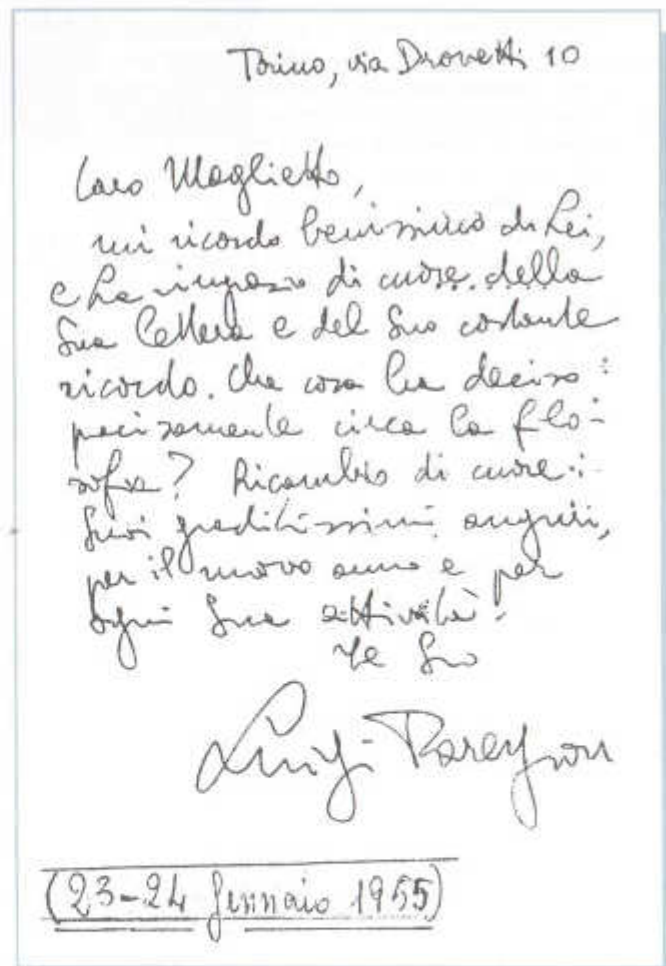 Torino, via Drovetti 10
Caro Maglietto,
mi ricordo benissimo di Lei,
e La ringrazio di cuore della
Sua lettera e del Suo costante
ricordo. Che cosa ha deciso
precisamente circa la filo-
sofia? Ricambio di cuore i
Suoi graditissimi auguri,
per il nuovo anno e per
ogni Sua attività.
Il Suo
Luigi Pareyson
(23-24 Gennaio 1955)